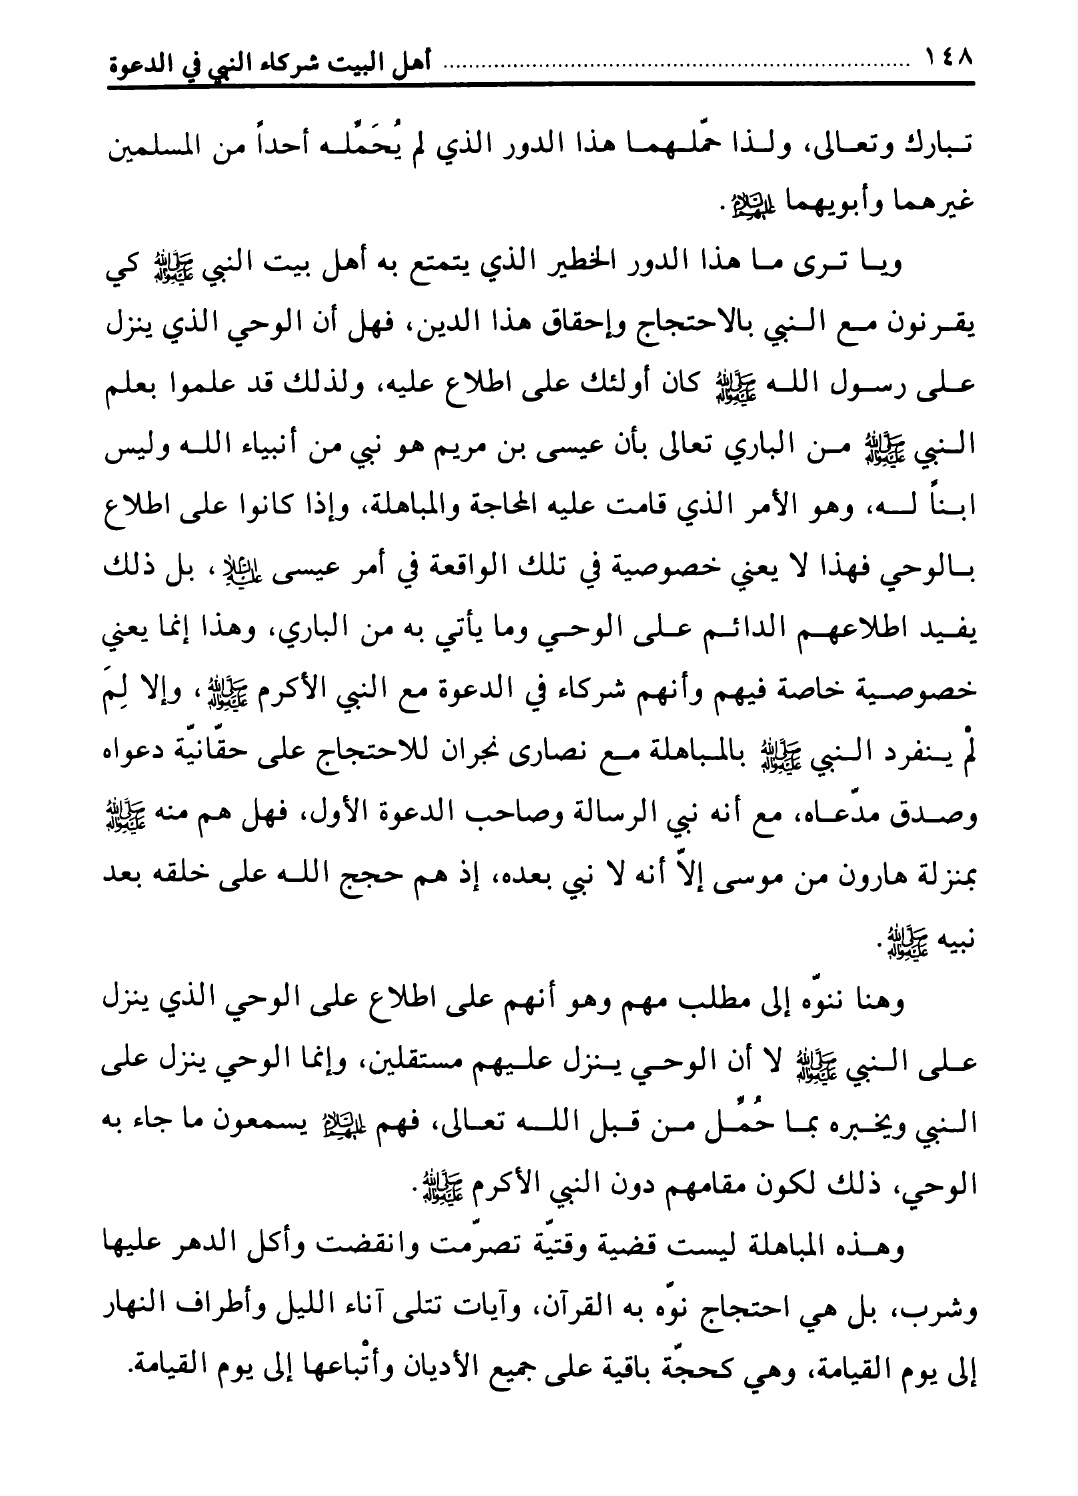 ١٤٨ ........................................ أهل البيت شركاء النبي في الدعوة
تبارك وتعالى، ولذا حمّلهما هذا الدور الذي لم يُحَمِّله أحداً من المسلمين
غيرهما وأبويهما عليهم السلام.
ويا ترى ما هذا الدور الخطير الذي يتمتع به أهل بيت النبي ﷺ كي
يقرنون مع النبي بالاحتجاج وإحقاق هذا الدين، فهل أن الوحي الذي ينزل
على رسول الله ﷺ كان أولئك على اطلاع عليه، ولذلك قد علموا بعلم
النبي ﷺ من الباري تعالى بأن عيسى بن مريم هو نبي من أنبياء الله وليس
ابناً له، وهو الأمر الذي قامت عليه المحاجة والمباهلة، وإذا كانوا على اطلاع
بالوحي فهذا لا يعني خصوصية في تلك الواقعة في أمر عيسى عليه السلام، بل ذلك
يفيد اطلاعهم الدائم على الوحي وما يأتي به من الباري، وهذا إنما يعني
خصوصية خاصة فيهم وأنهم شركاء في الدعوة مع النبي الأكرم ﷺ، وإلا لِمَ
لمْ ينفرد النبي ﷺ بالمباهلة مع نصارى نجران للاحتجاج على حقّانيّة دعواه
وصدق مدّعاه، مع أنه نبي الرسالة وصاحب الدعوة الأول، فهل هم منه ﷺ
بمنزلة هارون من موسى إلاّ أنه لا نبي بعده، إذ هم حجج الله على خلقه بعد
نبيه ﷺ.
وهنا ننوّه إلى مطلب مهم وهو أنهم على اطلاع على الوحي الذي ينزل
على النبي ﷺ لا أن الوحي ينزل عليهم مستقلين، وإنما الوحي ينزل على
النبي ويخبره بما حُمِّل من قبل الله تعالى، فهم عليهم السلام يسمعون ما جاء به
الوحي، ذلك لكون مقامهم دون النبي الأكرم ﷺ.
وهذه المباهلة ليست قضية وقتيّة تصرّمت وانقضت وأكل الدهر عليها
وشرب، بل هي احتجاج نوّه به القرآن، وآيات تتلى آناء الليل وأطراف النهار
إلى يوم القيامة، وهي كحجّة باقية على جميع الأديان وأتْباعها إلى يوم القيامة.